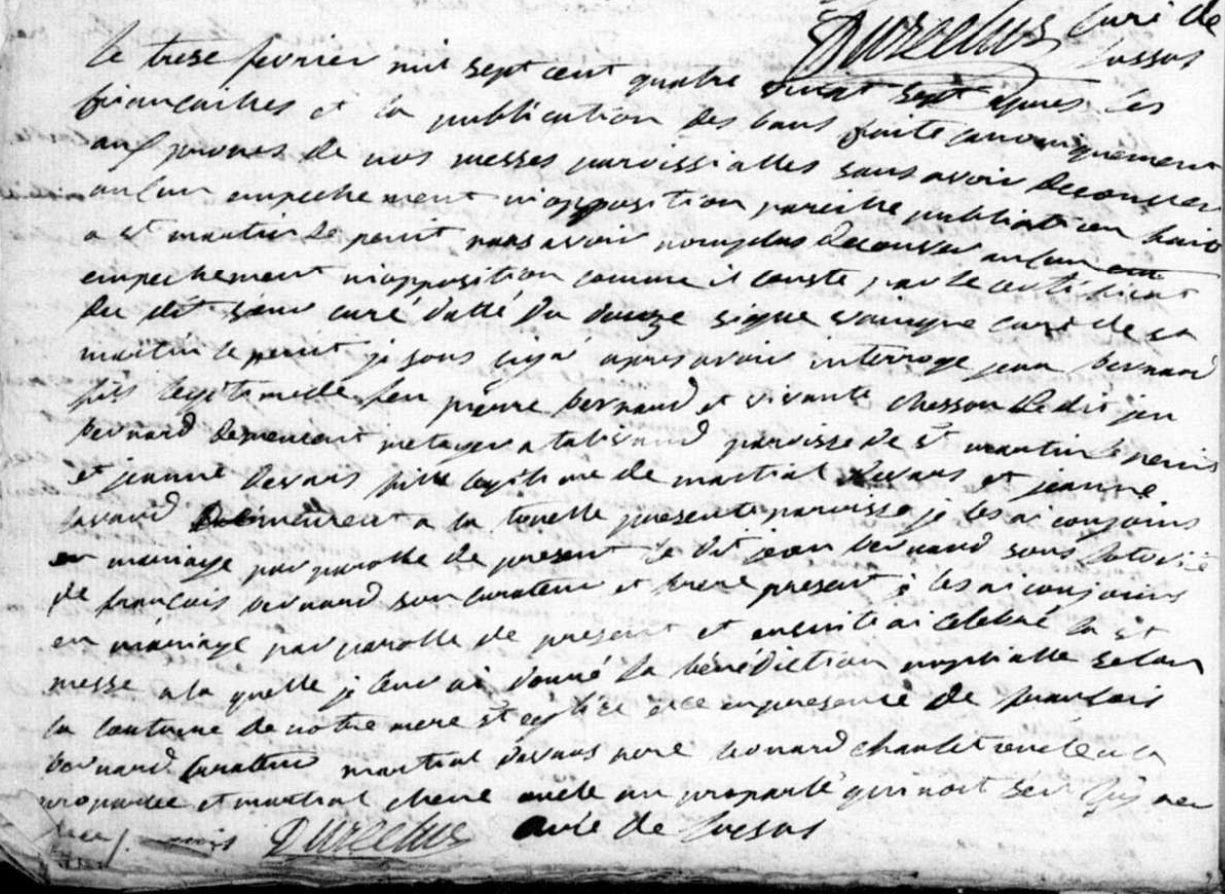 Durcelus curé de
lussas
le trese fevrier mil sept cent quatre vingt sept apres les
fiancailles et la publication des bans faite canoniquement
aux prones de nos messes paroissialles sans avoir decouver
aucun empechement ni opposition pareille publication faite
a st martin le peint sans avoir non plus decouver aucun
empechement ni opposition comme il conste par le certificat
du dit sieur curé datté du douze signe curé de st
martin le peint je sous signé apres avoir interroge jean bernard
fils legitime de feu pierre bernard et vivante chesson le dit jean
bernard demeurant metayer a parroisse de st martin le peint
et jeanne devars fille legitime de martial devars et jeanne
lavaud demeurent a la presente parroisse je les ai conjoins
en mariage par parolle de present le dit jean bernard sous lotorité
de francois bernard son curateur et frere present je les ai conjoins
en mariage par parolle de present et ensuite ai celebré la st
messe a la quelle je leur ai donné la bénédiction nuptialle selon
la coutume de notre mere st eglise et ce en presence de francois
bernard curateur martial devars pere leonard oncle a la
proparlee et martial chene oncle au proparlé qui n'ont seu signer
Durcelus curé de lussas